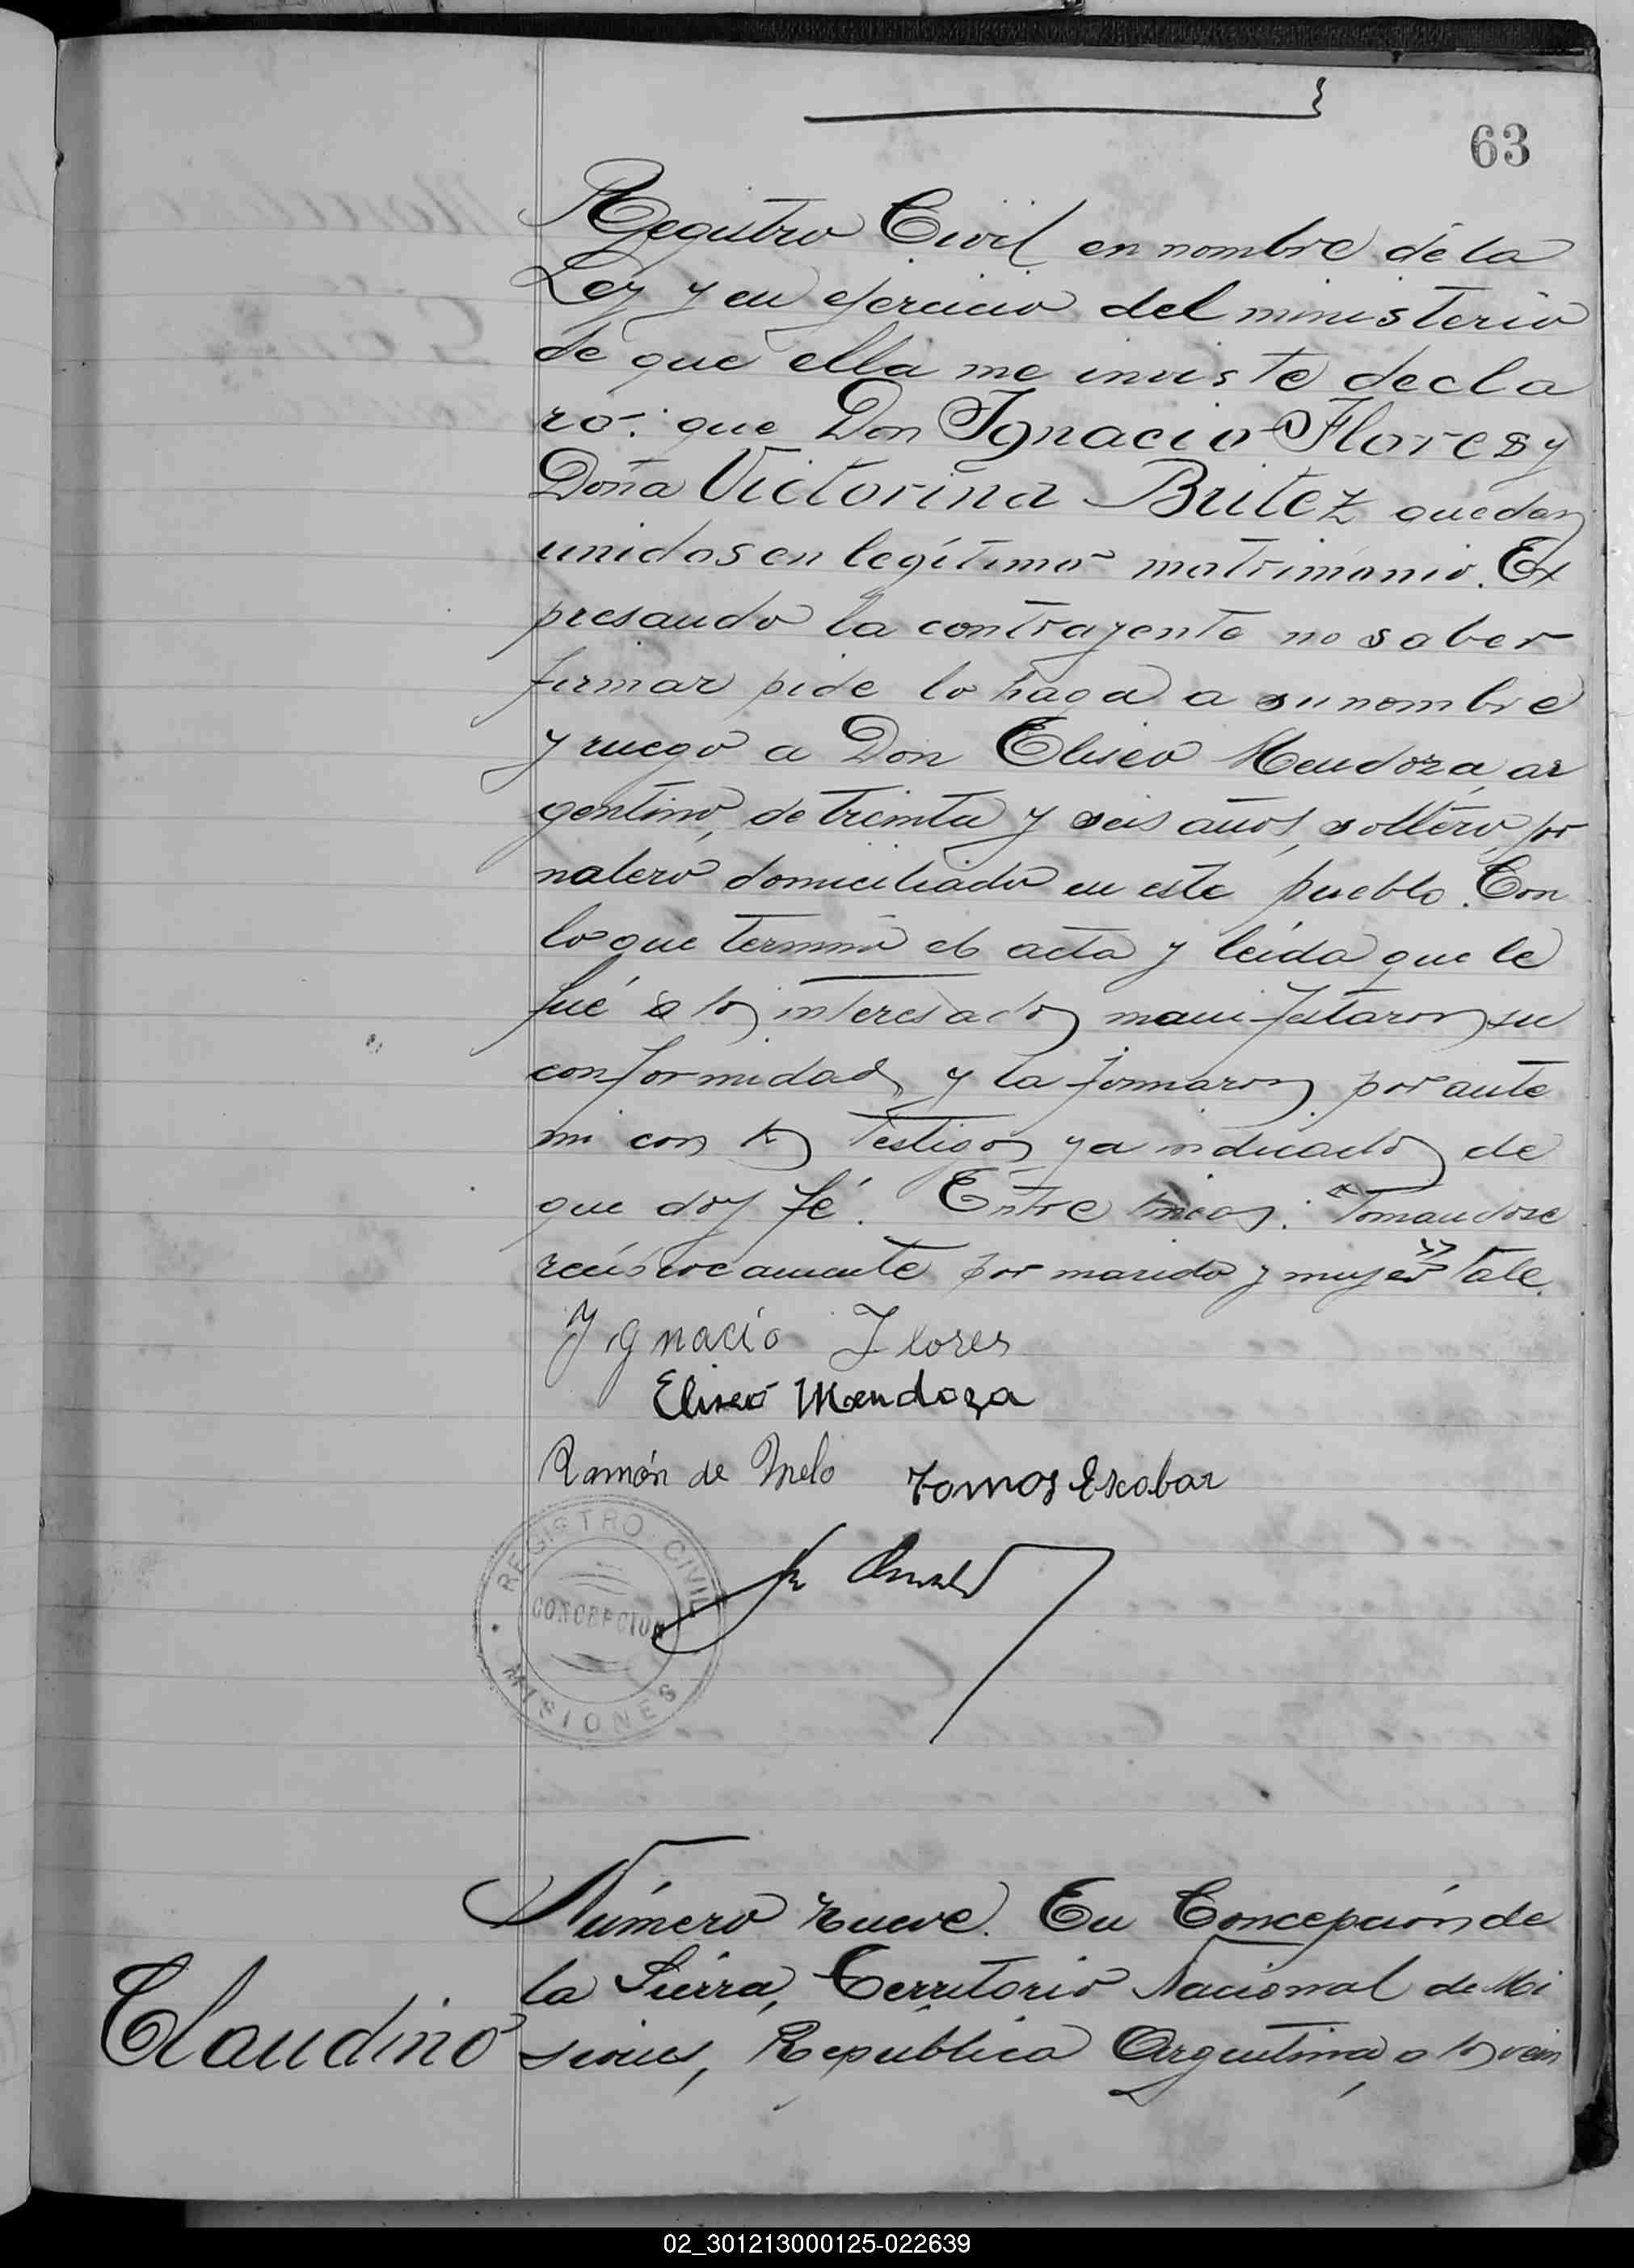 63
Registro Civil en nombre de la
Ley y en ejercicio del ministerio
de que ella me inviste decla
ro: que Don Ignacio Flores y
Doña Victorina Britez quedan
unidos en legítimo matrimonio. Ex
presando la contrayente no saber
firmar pide lo haga a su nombre
y ruego a Don Eliseo Mendoza, ar
gentino, de treinta y seis años, soltero, jor
nalero domiciliado en este pueblo. Con
lo que terminó el acta y leida que le
fué a los interesados manifestaron su
conformidad y la firmaron por ante
mi con los testigos ya indicados de
que doy fé. Entre lineas: "Tomandose
reciprocamente por marido y mujer" Vale.
Ygnacio Flores
Eliseo Mendoza
Ramón de Melo Tomas Escobar
REGISTRO CIVIL
CONCEPCION
MISIONES
Número nueve. En Concepción de
la Sierra, Territorio Nacional de Mi
Claudino
siones, República Argentina a los vein
02_301213000125-022639